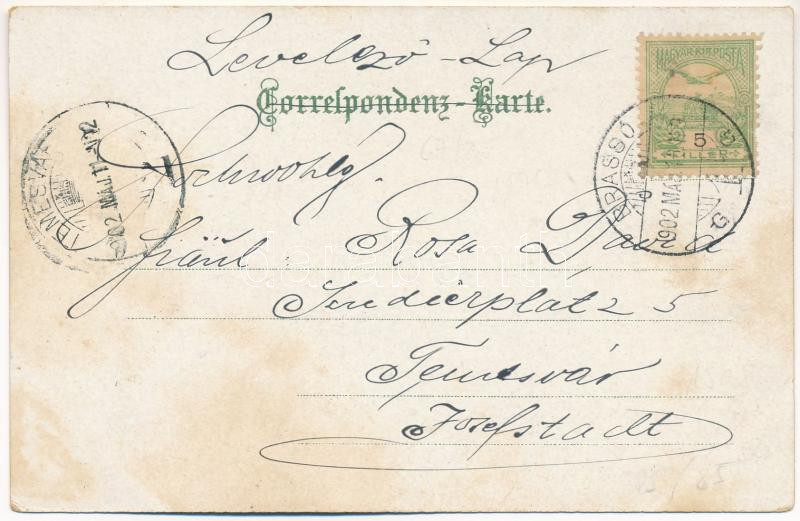 Levelező-Lap
Correspondenz-Karte.
MAGYAR KIR. POSTA
5
FILLER
BRASSÓ
902 MÁJ
TEMESVÁR
902 MÁJ 11
Fräul. Rosa David
5
Temesvár
Josefstadt